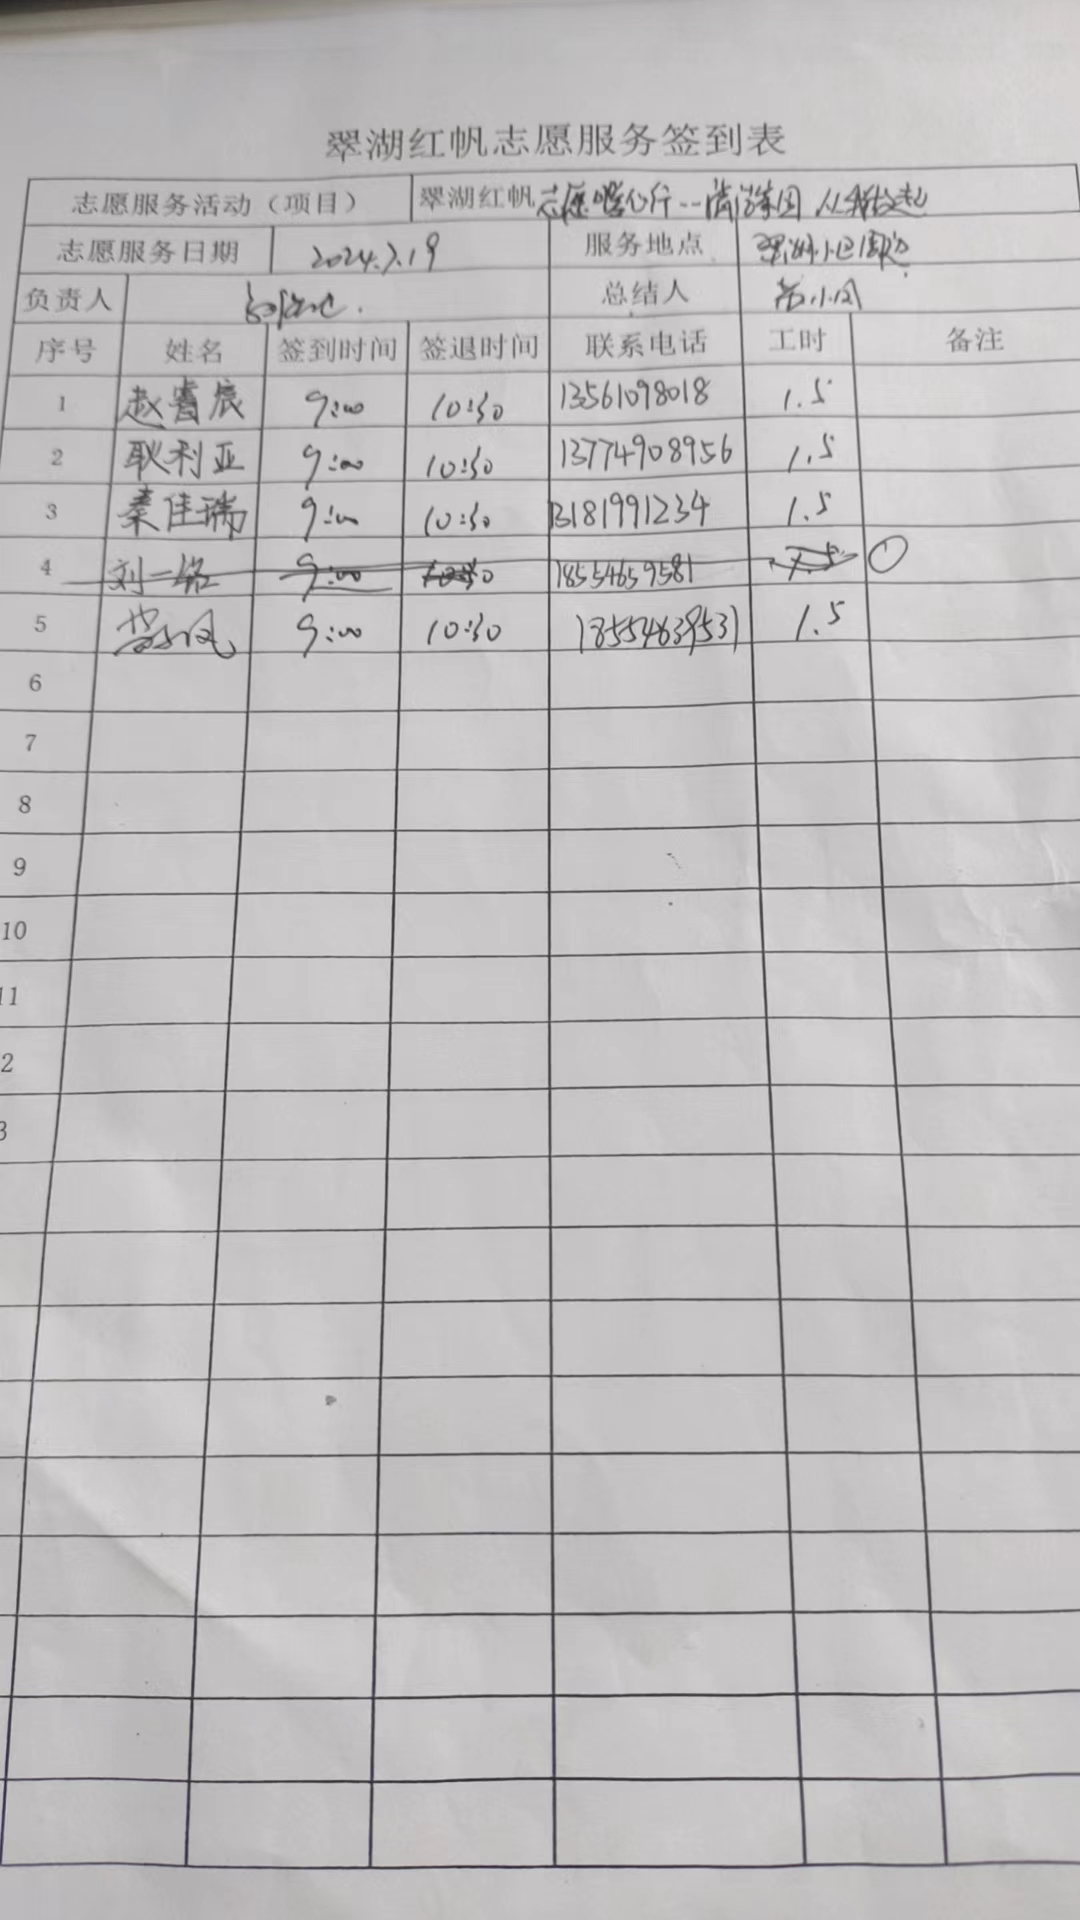 翠湖红帆志愿服务签到表
志愿服务活动（项目） 翠湖红帆志愿 从我做起
志愿服务日期 2024.7.19 服务地点 翠湖小区周边
负责人 总结人
序号 姓名 签到时间 签退时间 联系电话 工时 备注
1 赵睿辰 9:00 10:30 13561098018 1.5
2 耿利亚 9:00 10:30 13774908956 1.5
3 秦佳瑞 9:00 10:30 13181991234 1.5
4 刘一铭 9:00 10:30 18554659581 1.5 ①
5 9:00 10:30 18554639531 1.5
6
7
8
9
10
11
2
3